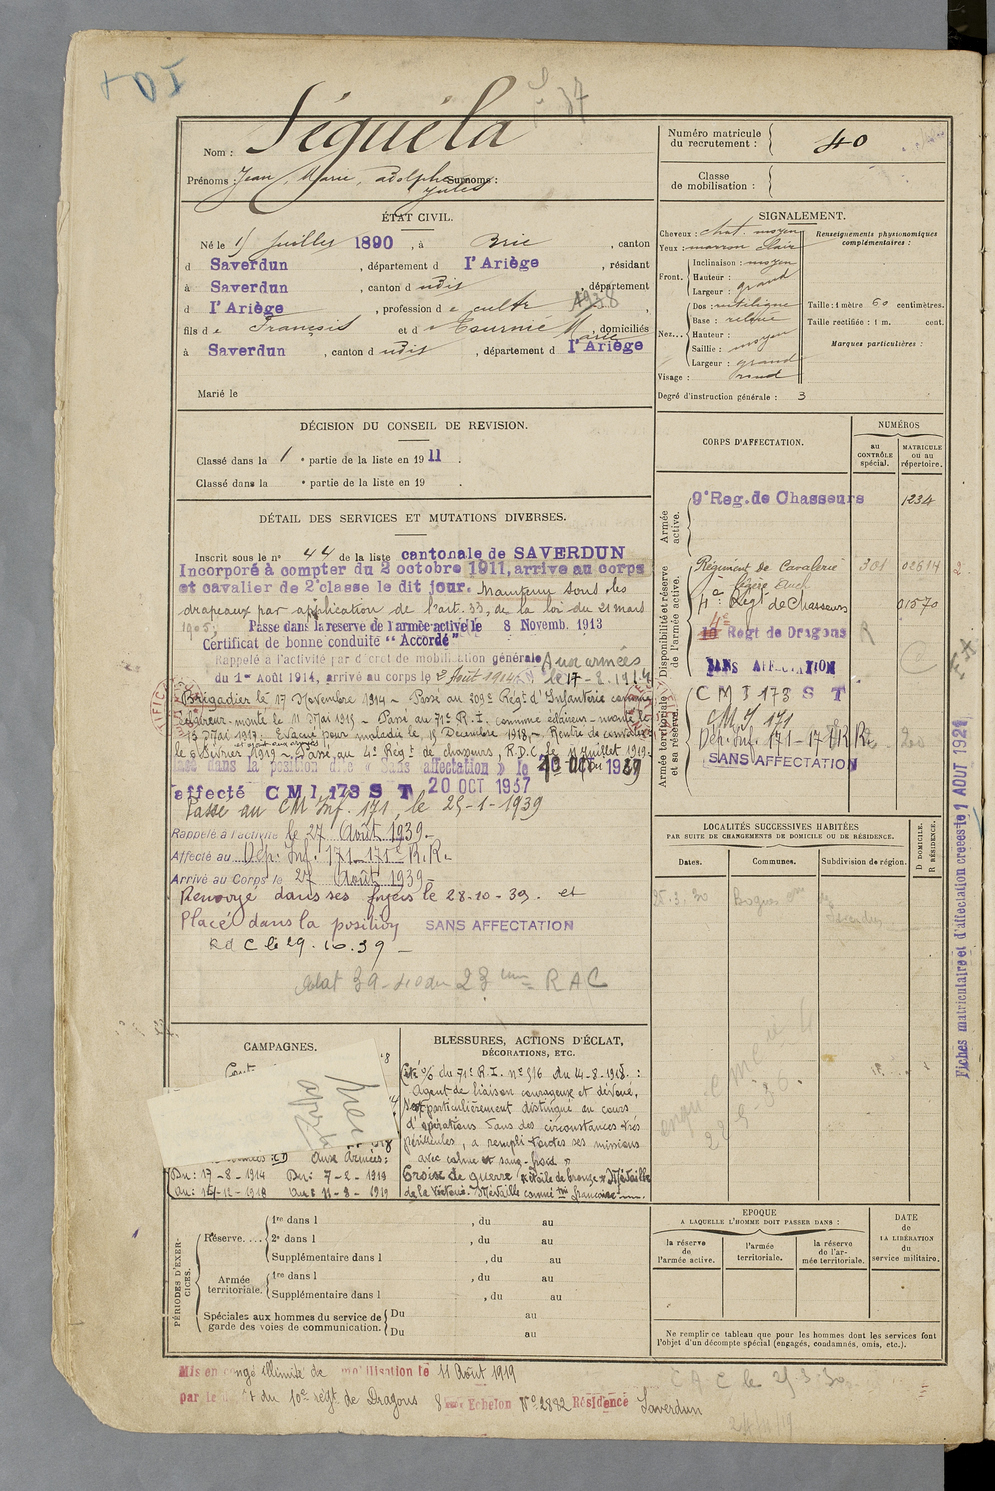 Séguéla
Nom :
Prénoms : Jean, Marie, Adolphe Surnoms :
Jules
ÉTAT CIVIL.
Né le 15 Juillet 1890, à Brie, canton
d Saverdun, département d l'Ariège, résidant
à Saverdun, canton d udit, département
d l'Ariège, profession d e cultr
fils d e François et d e Tournié Marie, domiciliés
à Saverdun, canton d udit, département d l'Ariège
Marié le
DÉCISION DU CONSEIL DE REVISION.
Classé dans la 1 e partie de la liste en 1911.
Classé dans la e partie de la liste en 19 .
DÉTAIL DES SERVICES ET MUTATIONS DIVERSES.
Inscrit sous le n° 44 de la liste cantonale de SAVERDUN
Incorporé à compter du 2 octobre 1911, arrive au corps
et cavalier de 2e classe le dit jour. Maintenu sous les
drapeaux par application de l'art. 33, de la loi du 21 mars
1905; Passé dans la reserve de l'armée active le 8 Novemb. 1913
Certificat de bonne conduite "Accordé"
Rappelé à l'activité par décret de mobilisation générale Aux armées
du 1er Août 1914, arrivé au corps le 2 Août 1914 le 17-8-1914
Brigadier le 17 Novembre 1914 - Passé au 209e Régt d'Infanterie comme
éclaireur-monté le 11 Mai 1915 - Passé au 71e R.I. comme éclaireur-monté le
13 Mai 1917; Evacué pour maladie le 15 Décembre 1918, - Rentré de convalce
le 6 Février 1919 - Passé au 4e Régt de chasseurs, R.D.C. le 11 Juillet 1919.
Passé dans la position dite « Sans affectation » le
affecté C M I 173 S T 20 OCT 1937
Passé au CM Inf. 171, le 25-1-1939
Rappelé à l'activité le 27 Août 1939-
Affecté au Dép. Inf. 171-171e R.R.
Arrivé au Corps le 27 Août 1939-
Renvoyé dans ses foyers le 28-10-39. et
Placé dans la position SANS AFFECTATION
R d C le 29.10.39 -
CAMPAGNES.
Aux Armées:
Du: 17-8-1914 Du: 7-2-1919
Au: 14-12-1918 Au: 11-8-1919
BLESSURES, ACTIONS D'ÉCLAT,
DÉCORATIONS, ETC.
Cité o/o du 71e R.I. n° 516 du 14-8-1918. :
Agent de liaison courageux et dévoué,
s'est particulièrement distingué au cours
d'opérations dans des circonstances très
périlleuses, a rempli toutes ses missions
avec calme et sang-froid »
Croix de guerre (étoile de bronze) Médaille
de la Victoire. Médaille commé tive française
PÉRIODES D'EXERCICES.
Réserve.... 1re dans l , du au
2e dans l , du au
Supplémentaire dans l , du au
Armée territoriale. 1re dans l , du au
Supplémentaire dans l , du au
Spéciales aux hommes du service de garde des voies de communication. Du au
Du au
Mis en congé illimité de mobilisation le 11 Août 1919
par le dépôt du 10e régt de Dragons 8e Echelon N° 2882 Résidence Saverdun
Numéro matricule du recrutement : 40
Classe de mobilisation :
SIGNALEMENT.
Cheveux : chat. moyen
Yeux : marron clair
Front. Inclinaison : moyen
Hauteur :
Largeur : grand
Nez... Dos : rectiligne
Base : relevée
Hauteur :
Saillie : moyen
Largeur : grand
Visage : rond
Renseignements physionomiques complémentaires :
Taille : 1 mètre 60 centimètres.
Taille rectifiée : 1 m. cent.
Marques particulières :
Degré d'instruction générale : 3
CORPS D'AFFECTATION.
NUMÉROS
au CONTRÔLE spécial.
MATRICULE ou au répertoire.
Armée active.
9e Reg. de Chasseurs 1234
Disponibilité et réserve de l'armée active.
Régiment de Cavalerie 301 02614
légère Auch
4e Régt de Chasseurs 01570
4e Regt de Dragons R
SANS AFFECTATION
Armée territoriale et sa réserve.
C M I 173 S T
CM I. 171
Dép. Inf. 171-171 R R.
SANS AFFECTATION
LOCALITÉS SUCCESSIVES HABITÉES
PAR SUITE DE CHANGEMENTS DE DOMICILE OU DE RÉSIDENCE.
Dates. Communes. Subdivision de région. D DOMICILE. R RÉSIDENCE.
EPOQUE
A LAQUELLE L'HOMME DOIT PASSER DANS :
la réserve de l'armée active.
l'armée territoriale.
la réserve de l'armée territoriale.
DATE de LA LIBÉRATION du service militaire.
Ne remplir ce tableau que pour les hommes dont les services font
l'objet d'un décompte spécial (engagés, condamnés, omis, etc.).
Fiches matriculaire et d'affectation creees le 1 AOUT 1921